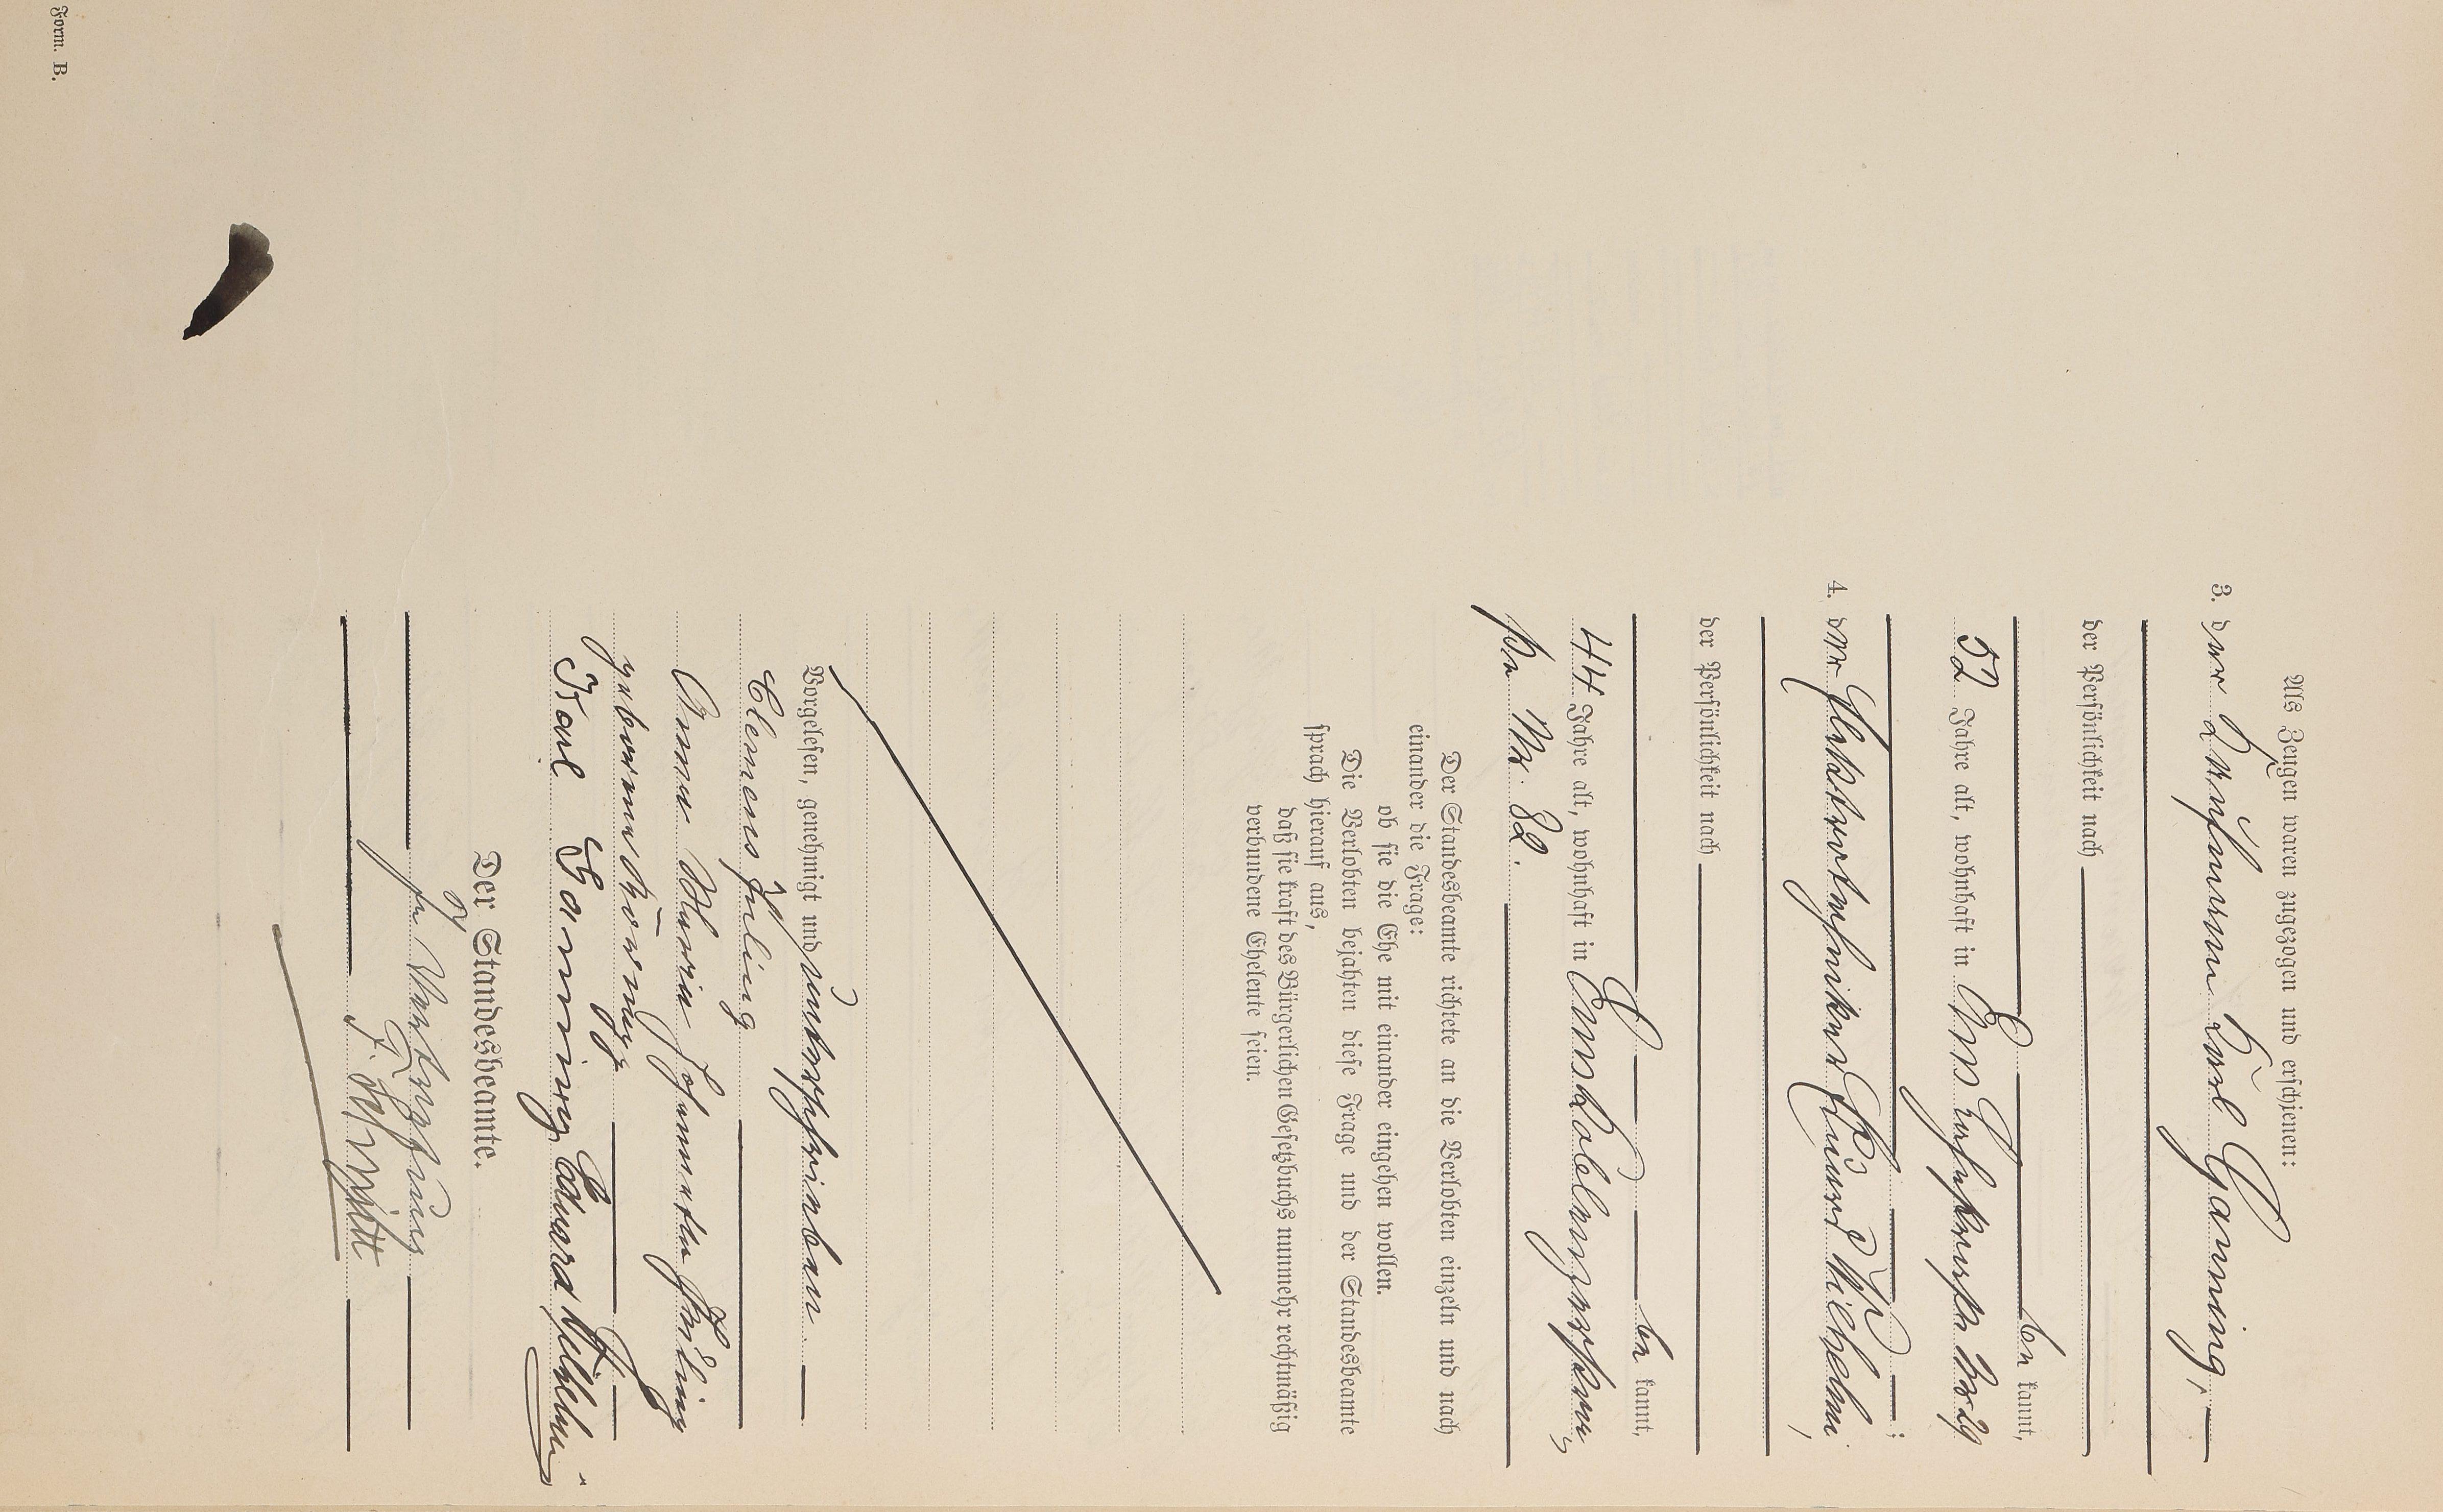 Als Zeugen waren zugezogen und erschienen:
3. der Kaufmann Karl Ganning,
der Persönlichkeit nach
be kannt,
52 Jahre alt, wohnhaft in
4. der Elektrotechniker Eduard Wilhelmi,
der Persönlichkeit nach
be kannt,
44 Jahre alt, wohnhaft in
ße Nr. 82.
Der Standesbeamte richtete an die Verlobten einzeln und nach
einander die Frage:
ob sie die Ehe mit einander eingehen wollen.
Die Verlobten bejahten diese Frage und der Standesbeamte
sprach hierauf aus,
daß sie kraft des Bürgerlichen Gesetzbuchs nunmehr rechtmäßig
verbundene Eheleute seien.
Vorgelesen, genehmigt und unterschrieben.
Clemens Füling
Anna Maria Johannette Füling
geborene
Karl Ganning Eduard Wilhelmi
Der Standesbeamte.
In Vertretung
Form. B.